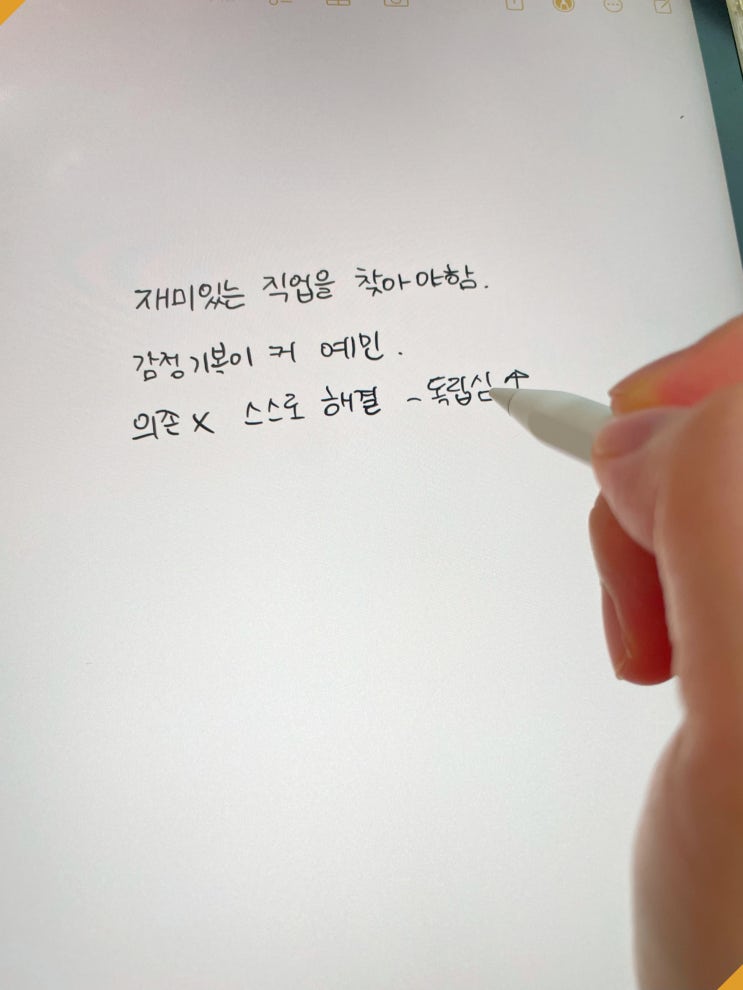 재미있는 직업을 찾아야함.
감정기복이 커 예민.
의존 X 스스로 해결 - 독립심 ↑